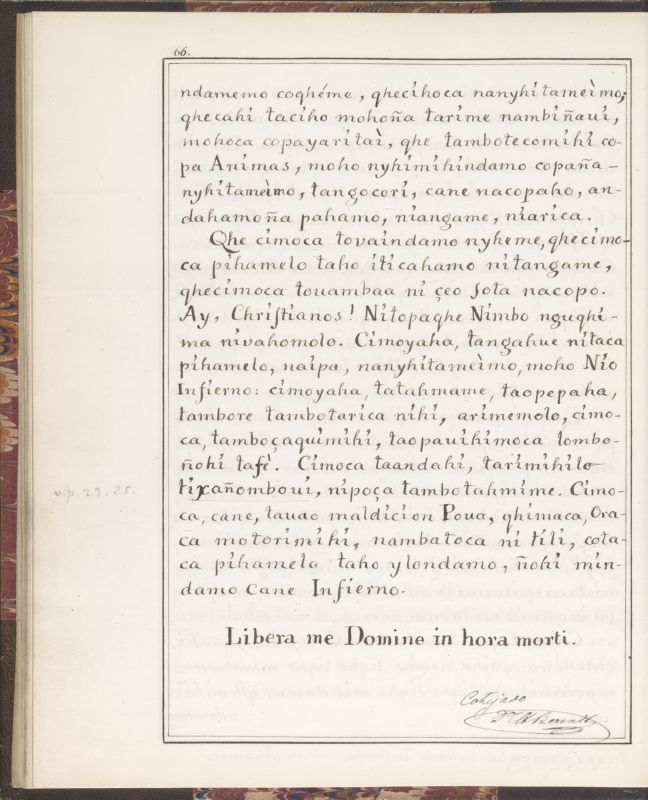 66.
ndamemo coghéme, qhecihoca nanyhitameìmo;
qhecahi taciho mohoña tarime nambiñaui,
mohoca copayaritaì, qhe tambotecomihi co-
pa Animas, moho nyhimihindamo copaña-
nyhitameìmo, tangocori, cane nacopaho, an-
dahamoña pahamo, niangame, niarica.
Qhe cimoca tovaindamo nyheme, qhecimo-
ca pihamelo taho iticahamo nitangame,
qhecimoca touambaa ni çeo sota nacopo.
Ay, Chriſtianos! Nitopaqhe Nimbo nguqhi-
ma nivahomolo. Cimoyaha, tangahue nitaca
pihamelo, naipa, nanyhitameìmo, moho Nio
Infierno: cimoyaha, tatahmame, taopepaha,
tambore tambotarica nihi, arimemolo, cimo-
ca, tamboçaquimihi, taopauihimoca lombo-
ñohi tafè. Cimoca taandahi, tarimihilo
tixañomboui, nipoça tambotahmime. Cimo-
v.p. 23. 25.
ca, cane, tauao maldicion Poua, qhimaca, Ora-
ca motorimihi, nambatoca ni tili, cota-
ca pihamelo taho ylondamo, ñohi min-
damo Cane Infierno.
Libera me Domine in hora morti.
Cotejado